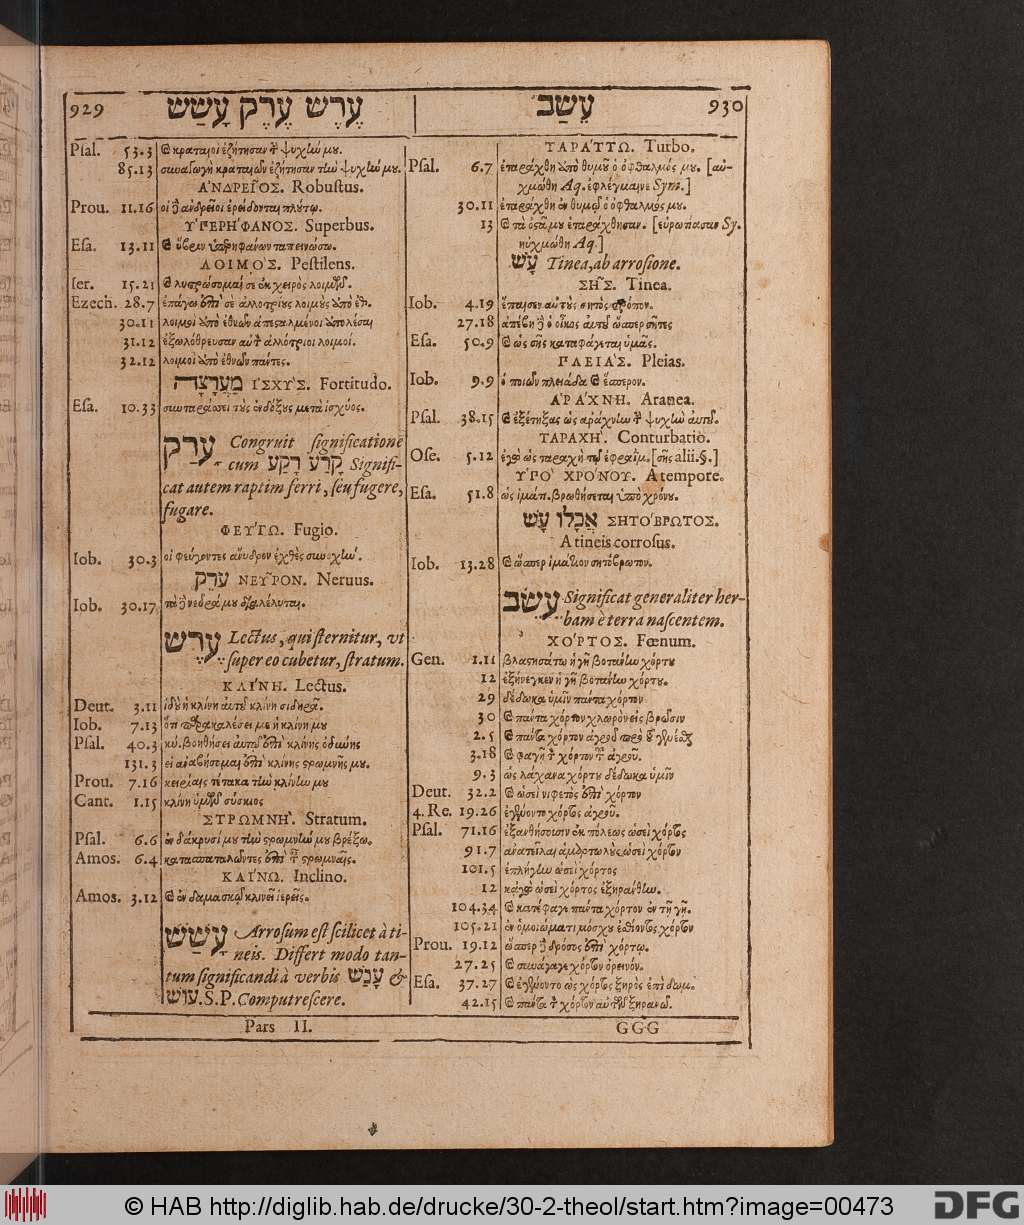 929 עֶרֶשׂ עֶרֶק עָשַׁשׁ
Psal. 53.3 κραταιοὶ ἐζήτησαν ψυχίω μου.
85.13 συναγωγὴ κραταιῶν ἐζήτησαν τίω ψυχίω μου.
ἈΝΔΡΕΙ͂ΟΣ. Robustus.
Prou. 11.16 οἱ ἀνδρεῖοι ἐρείδονται πλούτῳ.
ὙΠΕΡΉΦΑΝΟΣ. Superbus.
Esa. 13.11 ὕβριν ὑπερηφάνων ταπεινώσω.
ΛΟΙΜΌΣ. Pestilens.
Ier. 15.21 λυτρώσομαί σε ἐκ χειρὸς λοιμῶν.
Ezech. 28.7 ἐπάγω ἐπὶ σὲ ἀλλοτρίους λοιμοὺς ἀπὸ
30.11 λοιμοὶ ἀπὸ ἐθνῶν ἀπεσταλμένοι ἀπολέσαι
31.12 ἐξωλόθρευσαν ἀλλότριοι λοιμοί.
32.12 λοιμοὶ ἀπὸ ἐθνῶν πάντες.
מַעֲרָצָה ἸΣΧΎΣ. Fortitudo.
Esa. 10.33 συνταράσσει τοὺς ἐνδόξους μετὰ ἰσχύος.
עָרַק Congruit significatione
cum קָרַע רָקַע Signifi-
cat autem raptim ferri, seu fugere,
fugare.
ΦΕΎΓΩ. Fugio.
Iob. 30.3 οἱ φεύγοντες ἄνυδρον ἐχθὲς συνοχίω.
עֶרֶק ΝΕΥ͂ΡΟΝ. Neruus.
Iob. 30.17 νεῦρά μου διαλέλυται.
עֶרֶשׂ Lectus, qui sternitur, vt
super eo cubetur, stratum.
ΚΛΊΝΗ. Lectus.
Deut. 3.11 ἰδοὺ ἡ κλίνη αὐτοῦ κλίνη σιδηρᾶ.
Iob. 7.13 ὅτι παρακαλέσει με ἡ κλίνη μου
Psal. 40.3 κύ. βοηθήσει αὐτῷ ἐπὶ κλίνης ὀδύνης
131.3 εἰ ἀναβήσομαι ἐπὶ κλίνης στρωμνῆς μου.
Prou. 7.16 κειρίαις τέτακα τίω κλίνίω μου
Cant. 1.15 κλίνη ἡμῶν σύσκιος
ΣΤΡΩΜΝΉ. Stratum.
Psal. 6.6 ἐν δάκρυσί μου τίω στρωμνίω μου βρέξω.
Amos. 6.4 κατασπαταλῶντες ἐπὶ στρωμναῖς.
ΚΛΊΝΩ. Inclino.
Amos. 3.12 ἐν δαμασκῷ κλινεῖ ἱερεῖς.
עָשַׁשׁ Arrosum est scilicet à ti-
neis. Differt modo tan-
tum significandi à verbis עָבַשׁ &
עוּשׁ. S.P. Computrescere.
עֵשֶׂב 930
ΤΑΡΆΤΤΩ. Turbo.
Psal. 6.7 ἐταράχθη ἀπὸ θυμοῦ ὁ ὀφθαλμός μου. [αὐ-
χμώθη Aq. ἐφλέγμαινε Sym.]
30.11 ἐταράχθη ἐν θυμῷ ὁ ὀφθαλμός μου.
13 τὰ ὀστᾶ μου ἐταράχθησαν. [εὐρωτίασαν Sy.
ηὐχμώθη Aq.]
עָשׁ Tinea, ab arrosione.
ΣΗ͂Σ. Tinea.
Iob. 4.19 ἔπαισεν αὐτοὺς σητὸς τρόπον.
27.18 ἀπέβη ὁ οἶκος αὐτοῦ ὥσπερ σῆτες
Esa. 50.9 ὡς σὴς καταφάγεται ὑμᾶς.
ΠΛΕΙΆΣ. Pleias.
Iob. 9.9 ὁ ποιῶν πλειάδα ἕσπερον.
ἈΡΆΧΝΗ. Aranea.
Psal. 38.15 ἐξέτηξας ὡς ἀράχνίω ψυχίω αὐτοῦ.
ΤΑΡΑΧΉ. Conturbatio.
Ose. 5.12 ἐγὼ ὡς ταραχὴ τῷ ἐφραΐμ. [σὴς alii.§.]
ὙΠῸ ΧΡΌΝΟΥ. A tempore.
Esa. 51.8 ὡς ἱμάτ. βρωθήσεται ὑπὸ χρόνου.
אֲכָלוֹ עָשׁ ΣΗΤΌΒΡΩΤΟΣ.
A tineis corrosus.
Iob. 13.28 ὥσπερ ἱμάτιον σητόβρωτον.
עֵשֶׂב Significat generaliter her-
bam è terra nascentem.
ΧΌΡΤΟΣ. Fœnum.
Gen. 1.11 βλαστησάτω ἡ γῆ βοτάνίω χόρτου
12 ἐξήνεγκεν ἡ γῆ βοτάνίω χόρτου.
29 δέδωκα ὑμῖν πάντα χόρτον
30 πάντα χόρτον χλωρὸν εἰς βρῶσιν
2.5 πάντα χόρτον ἀγροῦ πρὸ τοῦ γενέσθαι
3.18 φαγῇ χόρτον ἀγροῦ.
9.3 ὡς λάχανα χόρτου δέδωκα ὑμῖν
Deut. 32.2 ὡσεὶ νιφετὸς ἐπὶ χόρτον
4. Re. 19.26 ἐγένοντο χόρτος ἀγροῦ.
Psal. 71.16 ἐξανθήσουσιν ἐκ πόλεως ὡσεὶ χόρτος
91.7 ἀνατεῖλαι ἁμαρτωλοὺς ὡσεὶ χόρτον
101.5 ἐπλήγίω ὡσεὶ χόρτος
12 κἀγὼ ὡσεὶ χόρτος ἐξηράνθίω.
104.34 κατέφαγε πάντα χόρτον ἐν τῇ γῇ.
105.21 ἐν ὁμοιώματι μόσχου ἐσθίοντος χόρτον
Prou. 19.12 ὥσπερ δρόσος ἐπὶ χόρτῳ.
27.25 συνάγαγε χόρτον ὀρεινόν.
Esa. 37.27 ἐγένοντο ὡς χόρτος ξηρὸς ἐπὶ δωμ.
42.15 πάντα χόρτον αὐτῶν ξηρανῶ.
Pars II. GGG
© HAB http://diglib.hab.de/drucke/30-2-theol/start.htm?image=00473 DFG